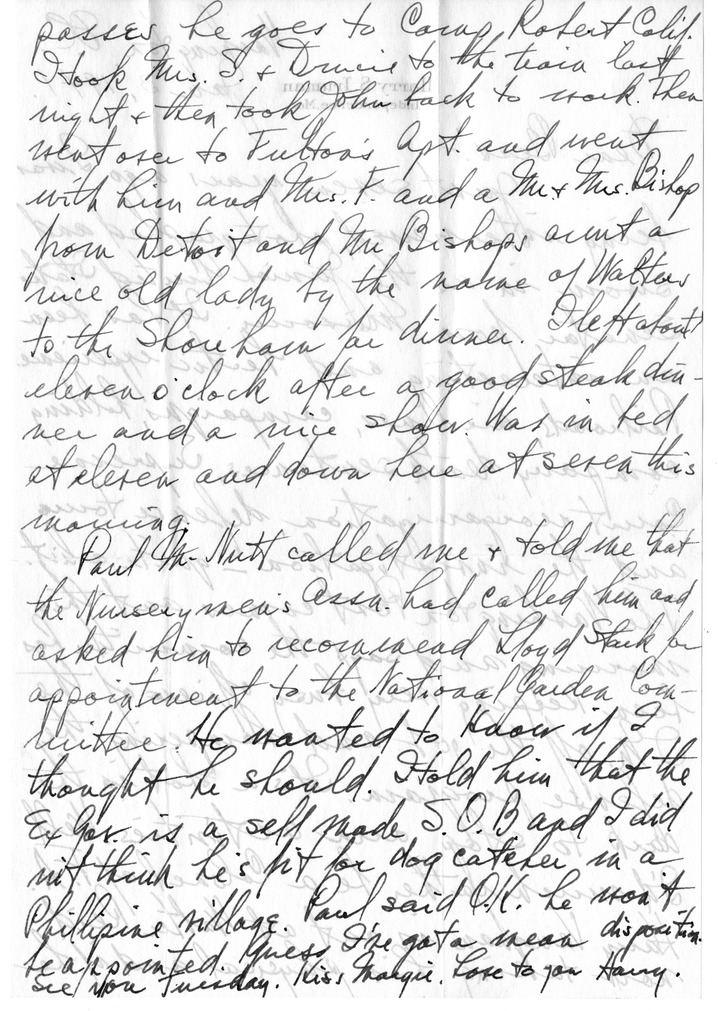 passes he goes to Camp Robert Calif.
I took Mrs. S. & Drucie to the train last
night & then took John back to work. Then
went over to Fulton's Apt. and went
with him and Mrs. F. and a Mr & Mrs. Bishop
from Detoit and Mr Bishops aunt a
nice old lady by the name of Walters
to the Shoreham for dinner. I left about
eleven o'clock after a good steak din-
ner and a nice show. Was in bed
at eleven and down here at seven this
morning.
Paul McNutt called me & told me that
the Nurserymen's Assn. had called him and
asked him to recommend Lloyd Stark for
appointment to the National Garden Com-
mittee. He wanted to know if I
thought he should. I told him that the
Ex Gov. is a self made S.O.B and I did
not think he's fit for dog catcher in a
Phillipine village. Paul said O.K. he won't
be appointed. Guess I've got a mean disposition.
See you Tuesday. Kiss Margie. Love to you Harry.